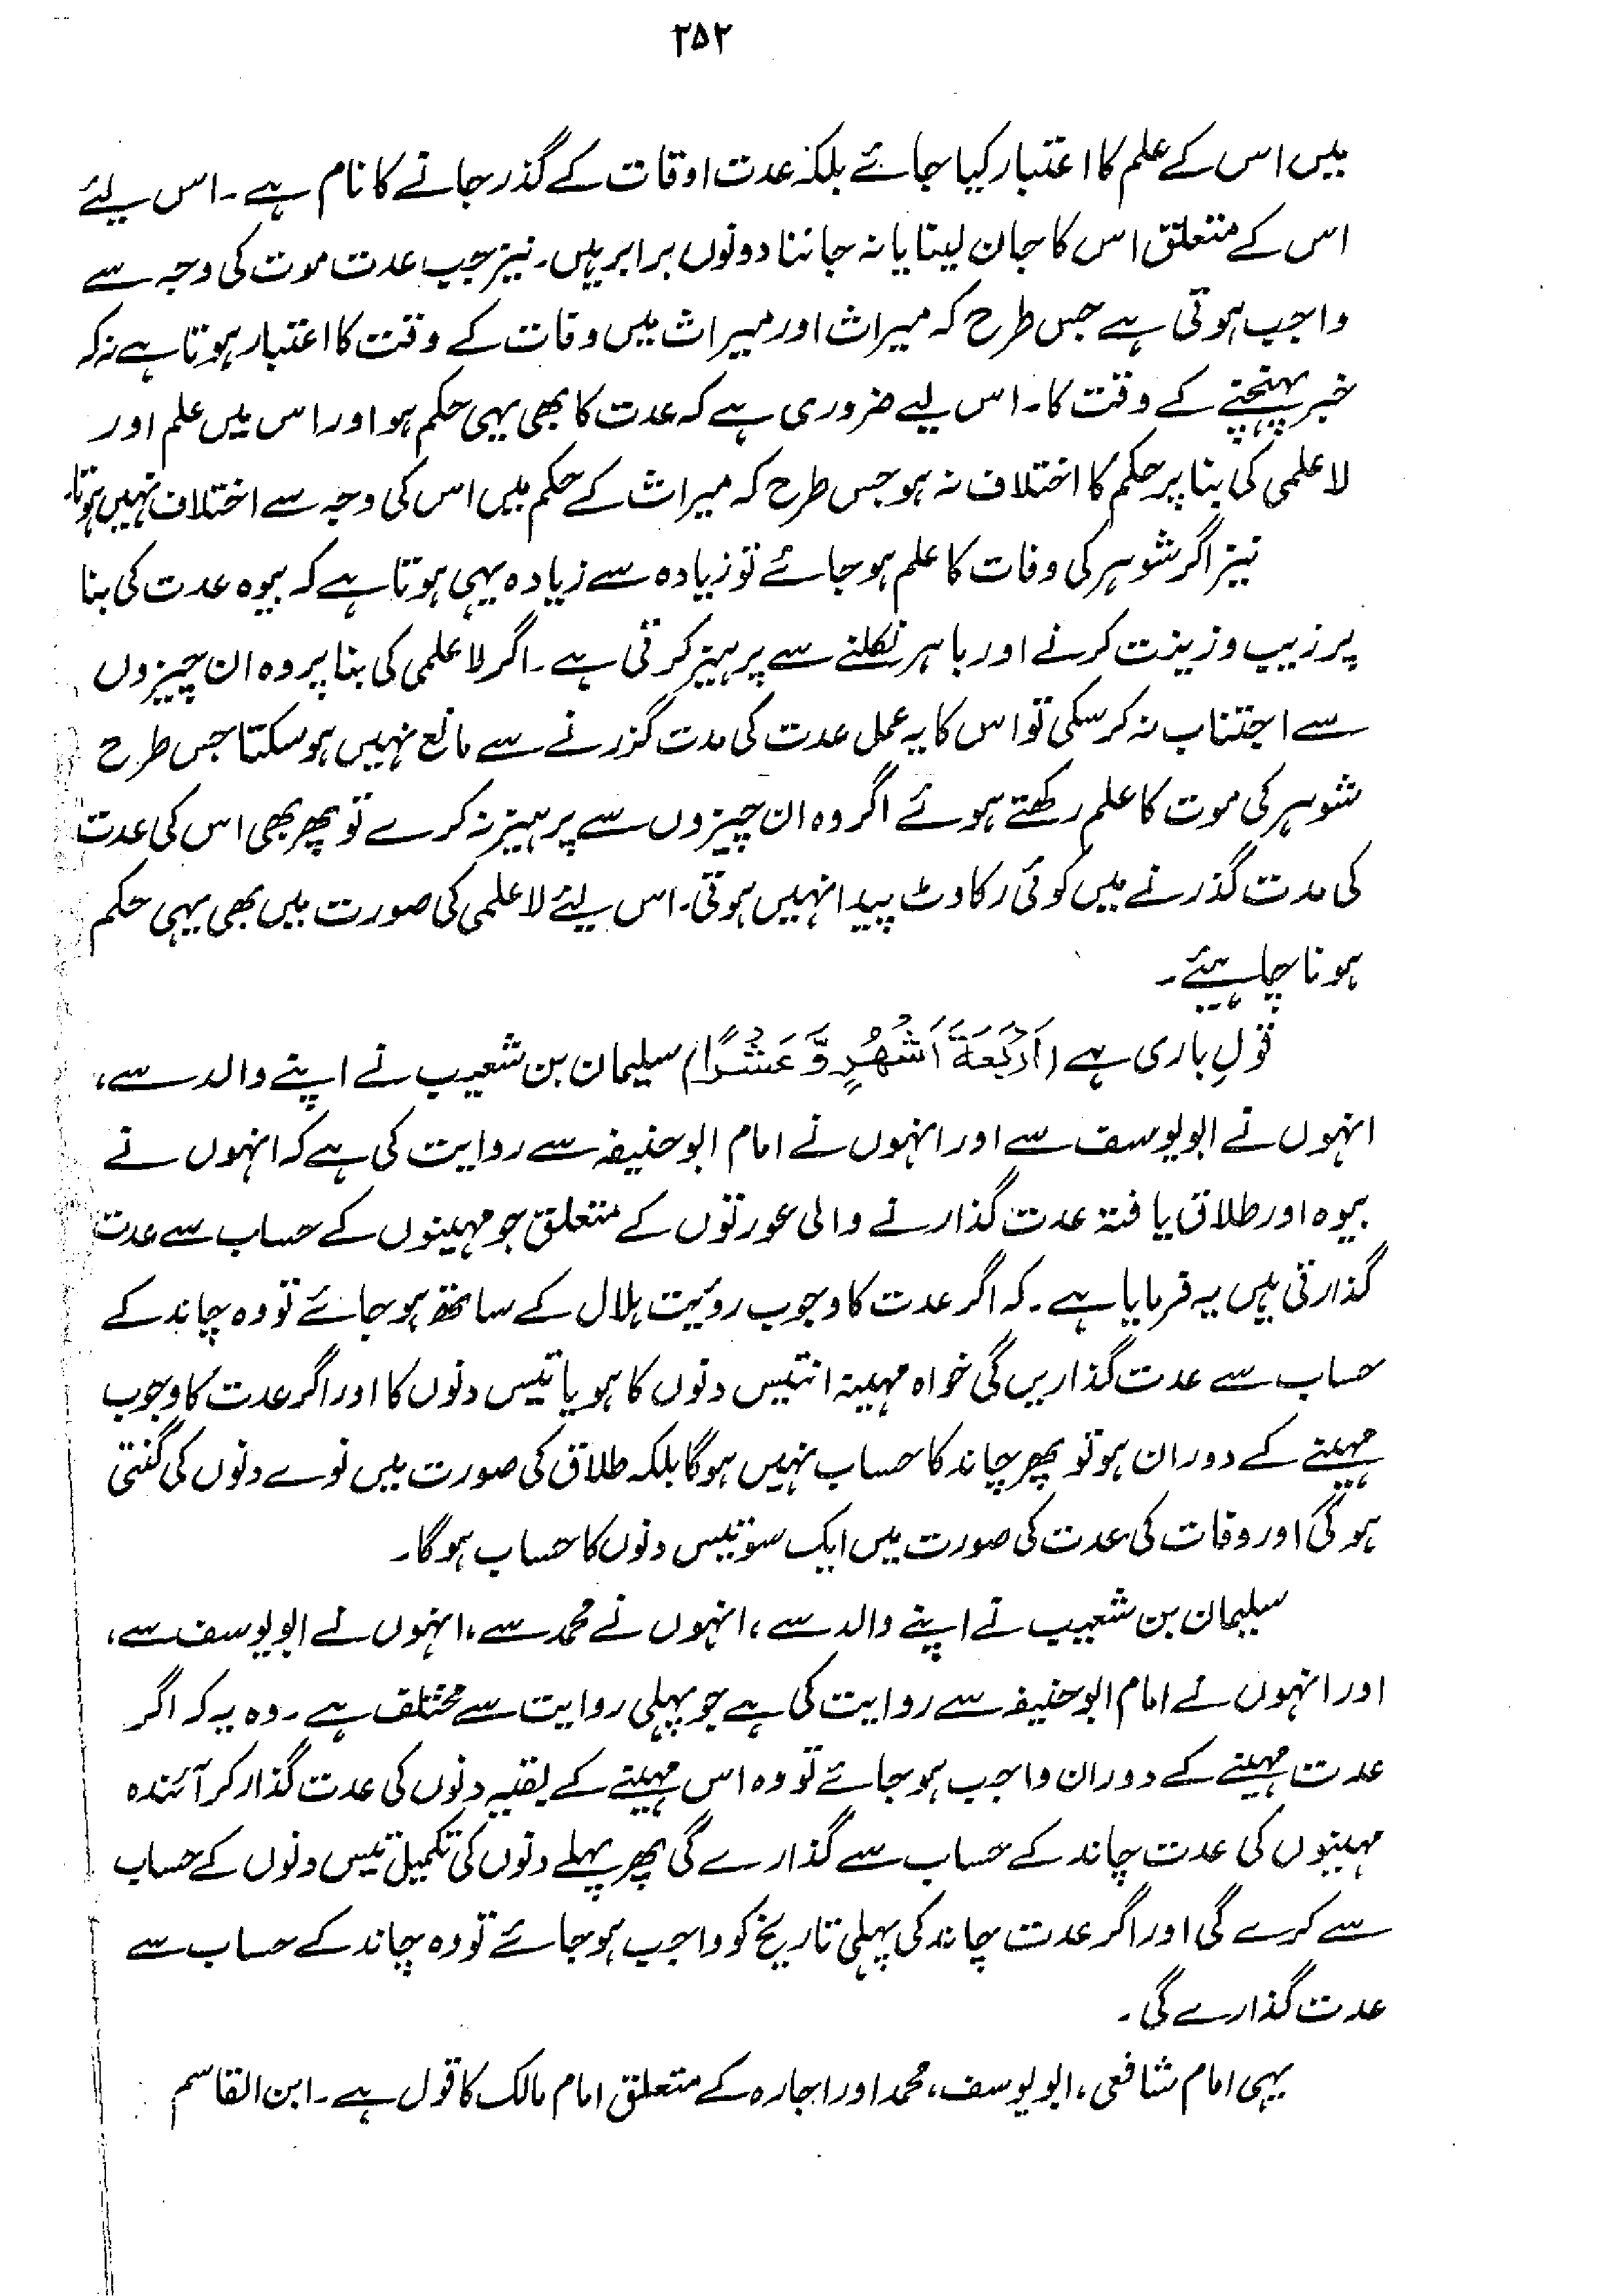 ۲۵۲
میں اس کے علم کا اعتبار کیا جائے بلکہ عدت اوقات کے گذر جانے کا نام ہے۔ اس لیئے
اس کے متعلق اس کا جان لینا یا نہ جاننا دونوں برابر ہیں۔ نیز جب عدت موت کی وجہ سے
واجب ہوتی ہے جس طرح کہ میراث اور میراث میں وفات کے وقت کا اعتبار ہوتا ہے نہ کہ
خبر پہنچنے کے وقت کا۔ اس لیے ضروری ہے کہ عدت کا بھی یہی حکم ہو اور اس میں علم اور
لاعلمی کی بنا پر حکم کا اختلاف نہ ہو جس طرح کہ میراث کے حکم میں اس کی وجہ سے اختلاف نہیں ہوتا۔
نیز اگر شوہر کی وفات کا علم ہو جائے تو زیادہ سے زیادہ یہی ہوتا ہے کہ بیوہ عدت کی بنا
پر زیب و زینت کرنے اور باہر نکلنے سے پرہیز کرتی ہے۔ اگر لاعلمی کی بنا پر وہ ان چیزوں
سے اجتناب نہ کر سکی تو اس کا یہ عمل عدت کی مدت گزرنے سے مانع نہیں ہو سکتا جس طرح
شوہر کی موت کا علم رکھتے ہوئے اگر وہ ان چیزوں سے پرہیز نہ کرے تو پھر بھی اس کی عدت
کی مدت گذرنے میں کوئی رکاوٹ پیدا نہیں ہوتی۔ اس لیئے لاعلمی کی صورت میں بھی یہی حکم
ہونا چاہیئے۔
قولِ باری ہے (اَرْبَعَةَ اَشْهُرٍ وَّ عَشْرًا) سلیمان بن شعیب نے اپنے والد سے،
انہوں نے ابویوسف سے اور انہوں نے امام ابوحنیفہ سے روایت کی ہے کہ انہوں نے
بیوہ اور طلاق یافتہ عدت گذارنے والی عورتوں کے متعلق جو مہینوں کے حساب سے عدت
گذارتی ہیں یہ فرمایا ہے۔ کہ اگر عدت کا وجوب روئیت ہلال کے ساتھ ہو جائے تو وہ چاند کے
حساب سے عدت گذاریں گی خواہ مہینہ انتیس دنوں کا ہو یا تیس دنوں کا اور اگر عدت کا وجوب
مہینے کے دوران ہو تو پھر چاند کا حساب نہیں ہو گا بلکہ طلاق کی صورت میں نوے دنوں کی گنتی
ہو گی اور وفات کی عدت کی صورت میں ایک سو تیس دنوں کا حساب ہو گا۔
سلیمان بن شعیب نے اپنے والد سے، انہوں نے محمد سے، انہوں نے ابویوسف سے،
اور انہوں نے امام ابوحنیفہ سے روایت کی ہے جو پہلی روایت سے مختلف ہے۔ وہ یہ کہ اگر
عدت مہینے کے دوران واجب ہو جائے تو وہ اس مہینے کے بقیہ دنوں کی عدت گذار کر آئندہ
مہینوں کی عدت چاند کے حساب سے گذارے گی پھر پہلے دنوں کی تکمیل تیس دنوں کے حساب
سے کرے گی اور اگر عدت چاند کی پہلی تاریخ کو واجب ہو جائے تو وہ چاند کے حساب سے
عدت گذارے گی۔
یہی امام شافعی، ابویوسف، محمد اور اجارہ کے متعلق امام مالک کا قول ہے۔ ابن القاسم